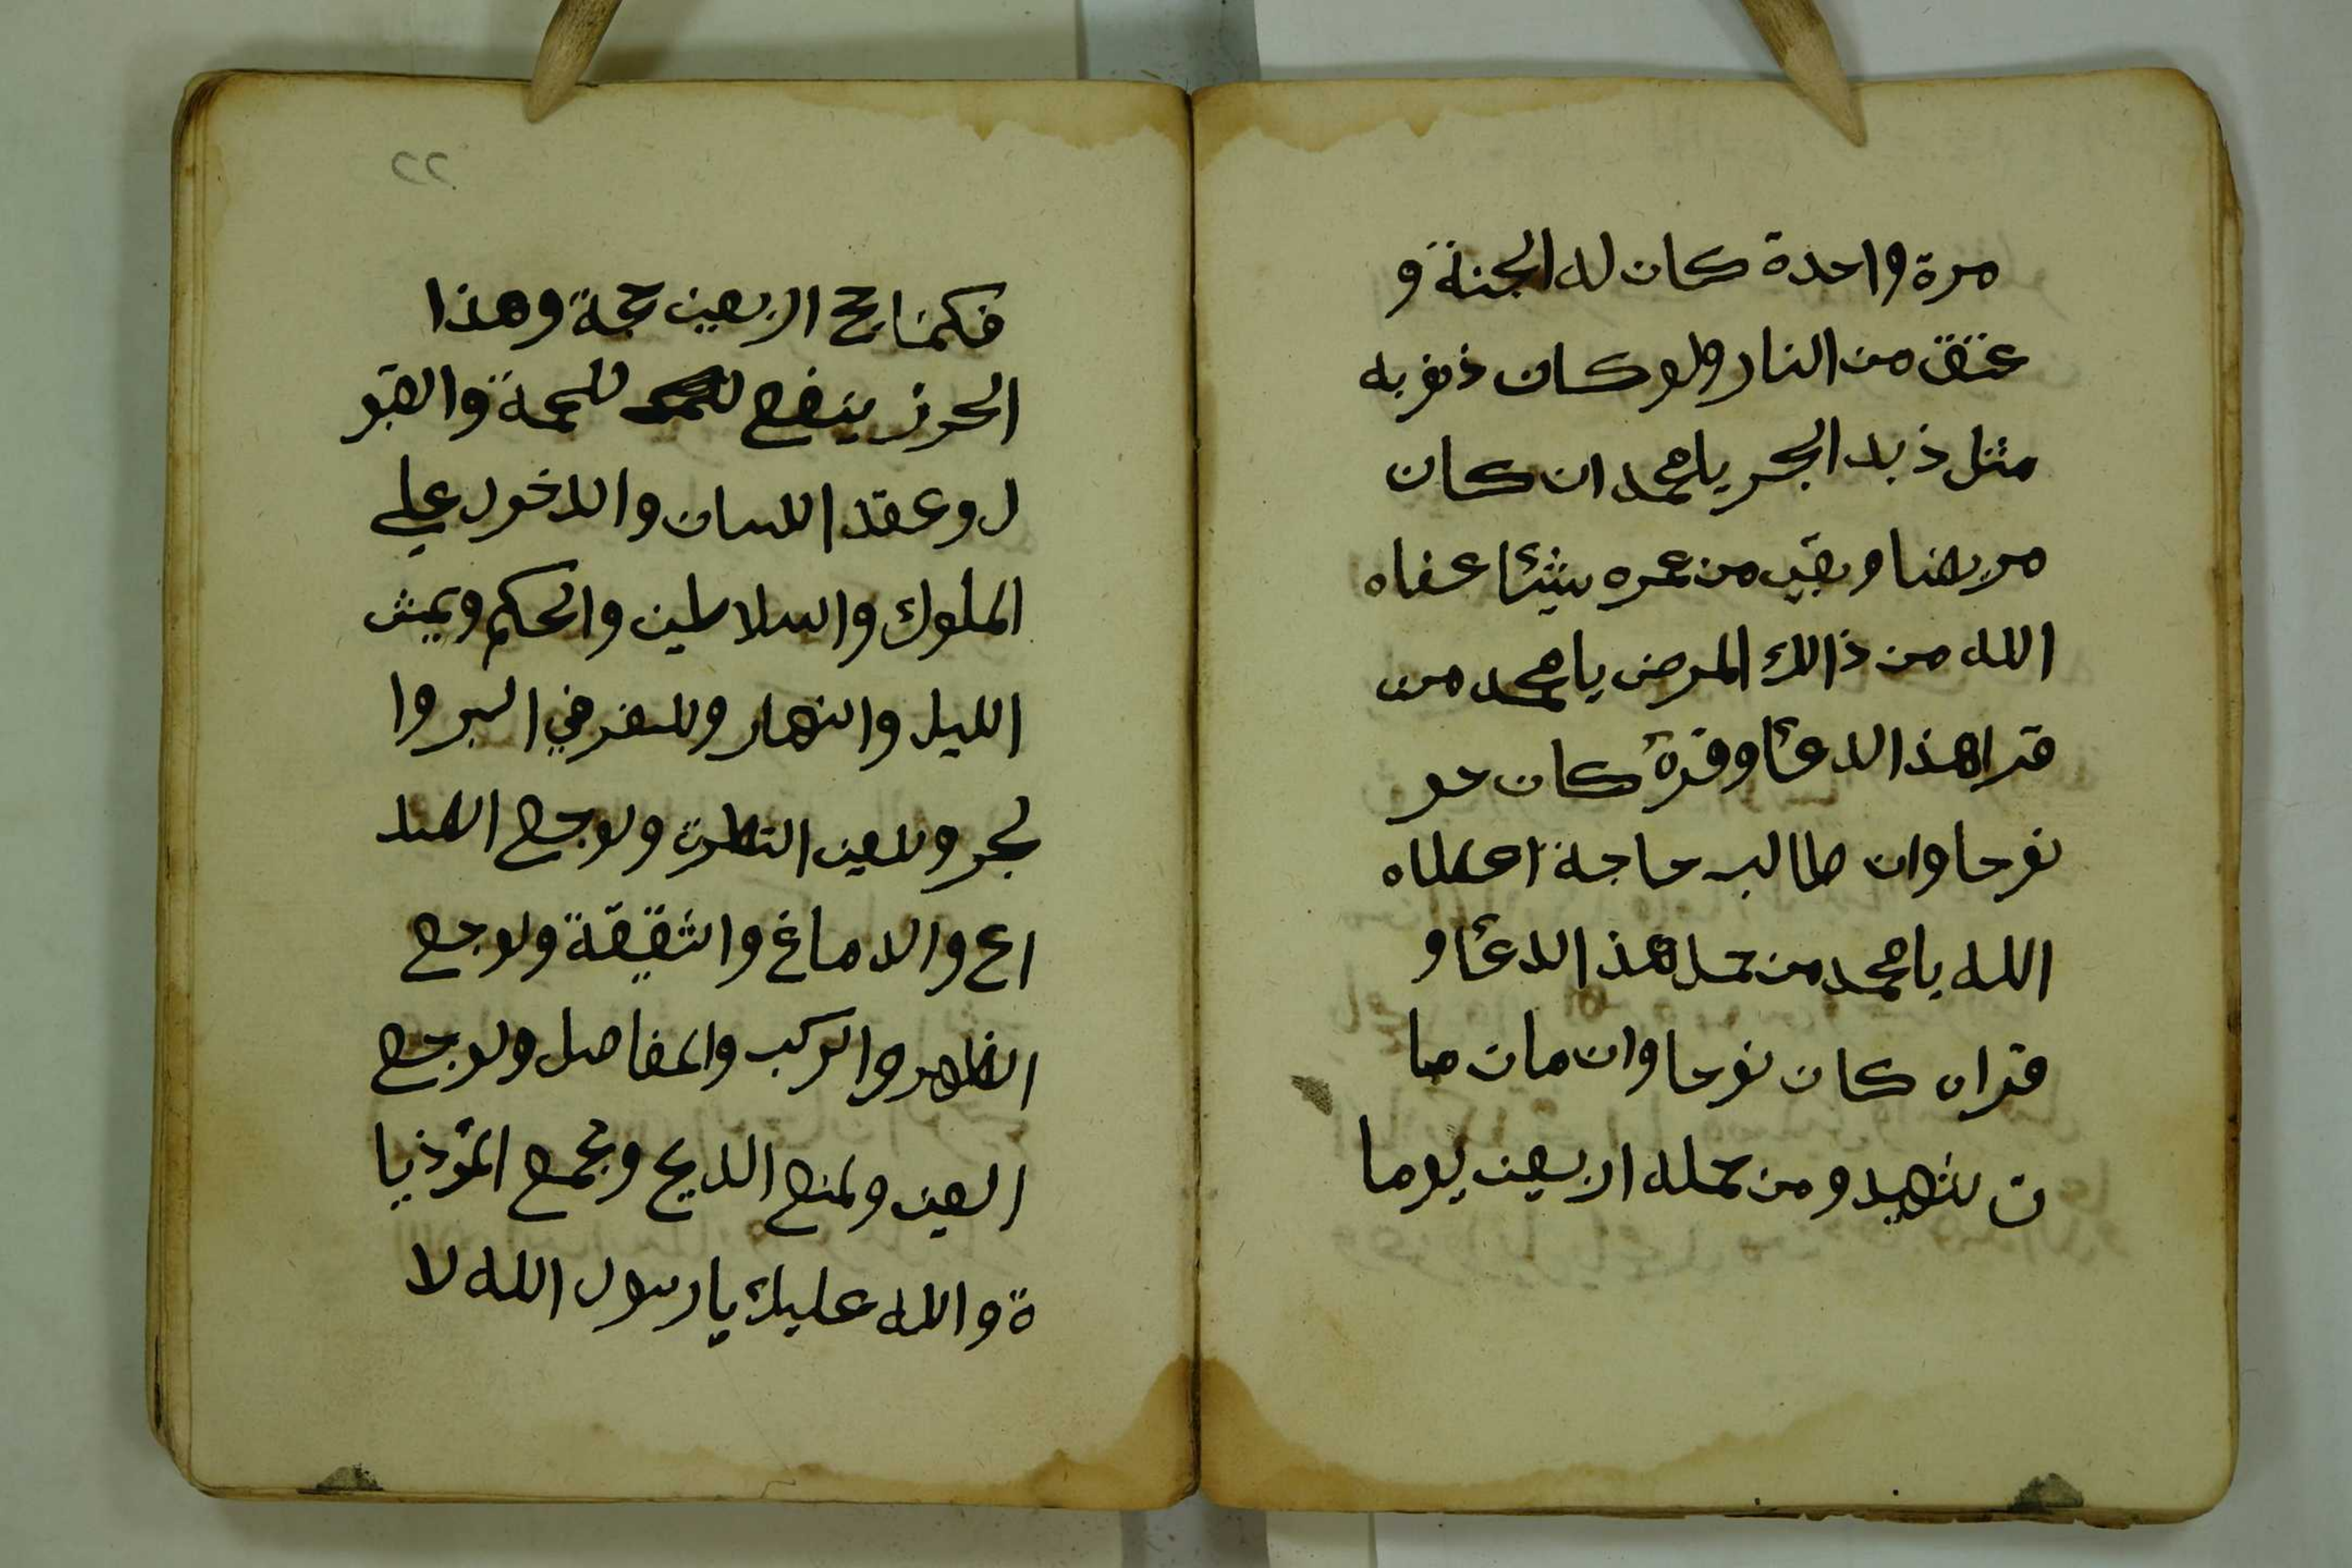 مرة واحدة كان له الجنة و
عتق من النار ولو كان ذنوبه
مثل ذبد البحر يا محمد ان كان
مريضا وبقي من عمره شيئا عفاه
الله من ذالك المرض يا محمد من
قرا هذا الدعا وقرة كان حو
نفرحا وان طالب حاجة اعطاه
الله يا محمد من حمل هذا الدعا و
قراه كان نفرحا وان مات ما
ت شهيد ومن حمله اربعين يوما
٢٢
فكمنا حج اربعين حجة وهذا
الحرز ينفع للحمة والقبو
ل وعقد اللسان والدخول علي
الملوك والسلاطين والحكم ويمش
الليل والنهار وللسفر في البر وا
لبحر وللعين النظرة ولوجع الصد
اع والدماغ والشقيقة ولوجع
الظهر والركب والمفاصل ولوجع
العين ولمنع الديح وبجمع المؤذيا
ة والله عليك يا رسول الله لا